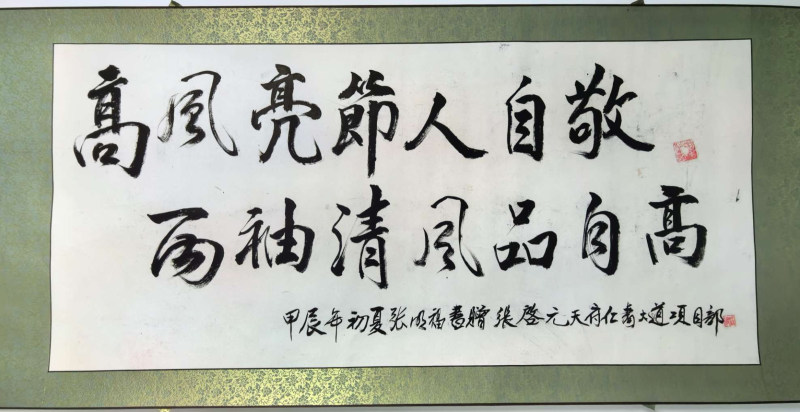 高风亮節人自敬
两袖清风品自高
甲辰年初夏张明福書贈張啓元天府仁寿大道项目部